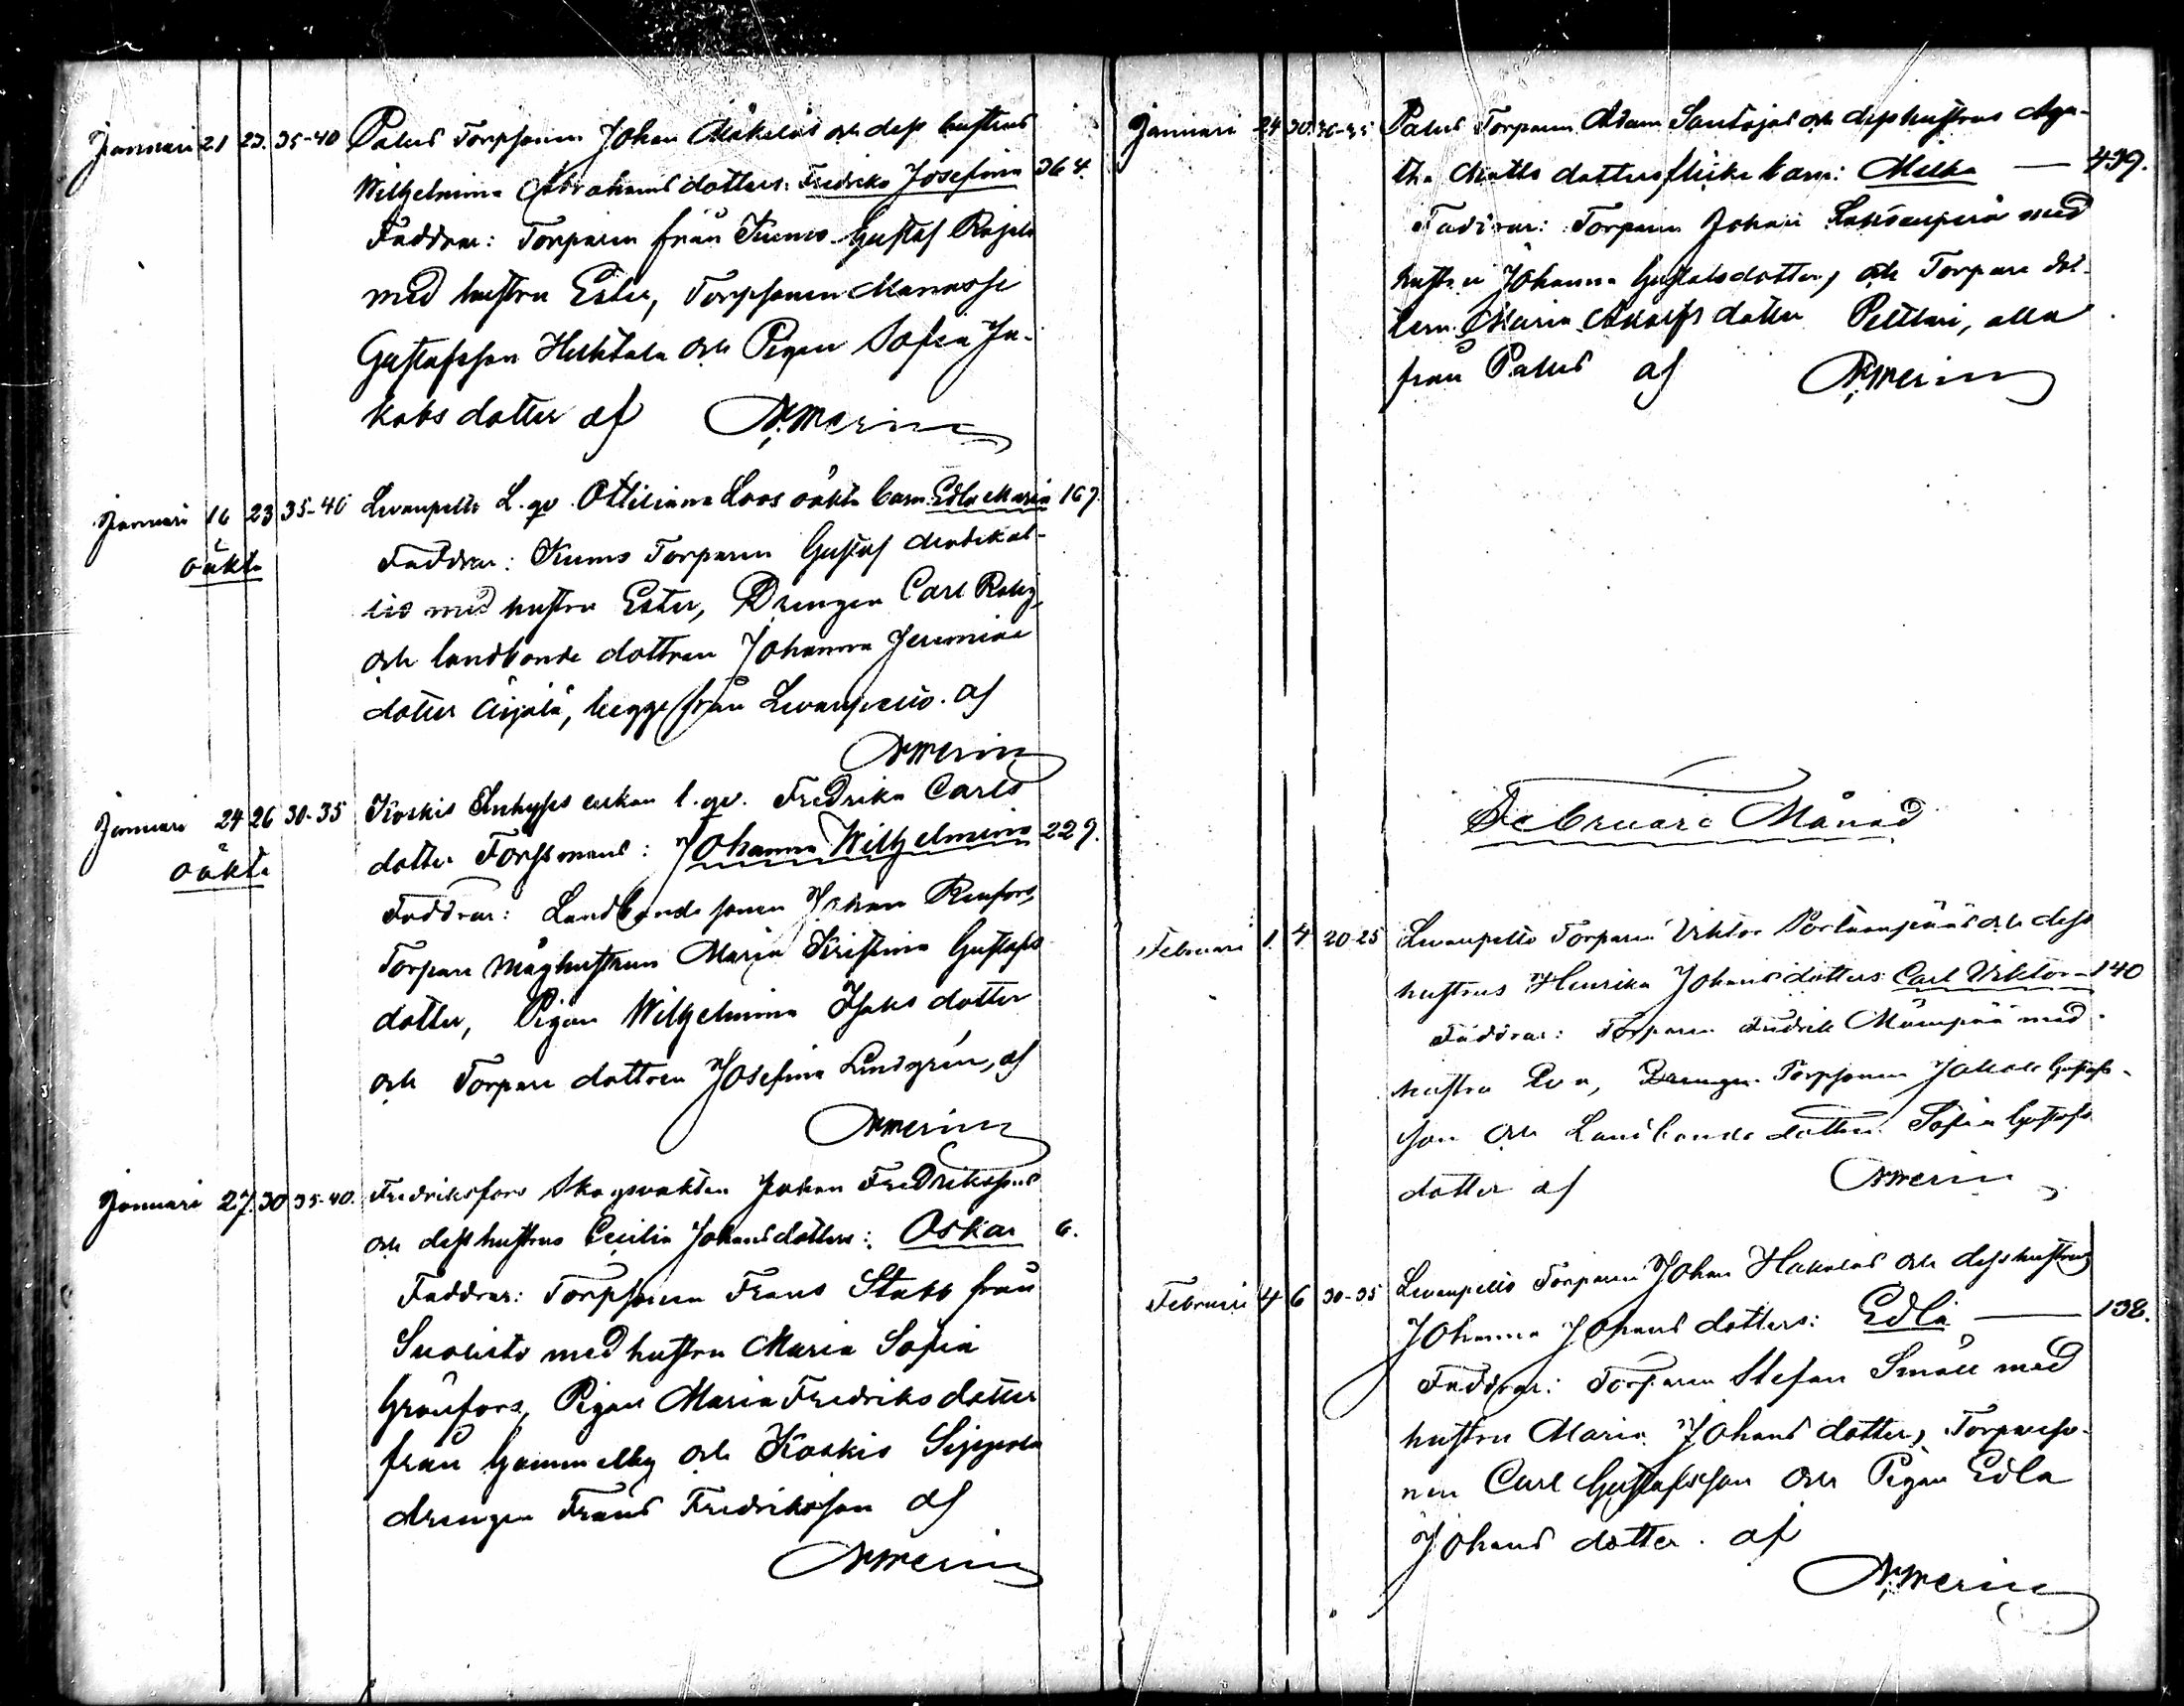 Januari 21 23. 35-40 Palus Torpsonen Johan Mäkeläs och dess hustrus
Wilhelmina Abrahamsdotters: Fredrika Josefina 364.
Faddrar: Torparen från Kumo Gustaf Rajala
med hustru Ester, Torpsonen Manasse
Gustafsson Heikkala och Pigan Sofia Ja-
kobsdotter af
Januari 16 23 35-40 Levanpelto L. qv. Ottiliana Loos oäkta barn Edla Maria 167.
oäkta
Faddrar: Kumo Torparen Gustaf
med hustru Ester, Drengen Carl
och landbonde dottren Johanna Jeremiae
dotter Äijälä, begge från Levanpelto. af
Januari 24 26 30-35 Koskis Inhyses enkan l. qv. Fredrika Carls
oäkta
dotter Forssmans: Johanna Wilhelmina 229.
Faddrar: Landbonde sonen Johan Renfors,
Torpare måghustrun Maria Kristina Gustafs
dotter, Pigan Wilhelmina Isaks dotter
och Torpare dottren Josefina Lindgrén, af
Januari 27. 30 35-40. Fredriksfors Skogsvakten Johan Fredrikssons
och dess hustrus Cecilia Johansdotters: Oskar 6.
Faddrar: Torpsonen Frans Stabb från
Suolisto med hustru Maria Sofia
Grönfors, Pigan Maria Fredriks dotter
från Gammelby och Koskis Seppälä
drengen Frans Fredriksson af
Januari 24 30 30-35 Palus Torparen Adam Santojas och dess hustrus Aga-
tha Matts dotters flicke barn: Milka — 439.
Faddrar: Torparen Johan med
hustru Johanna Gustafsdotter, och Torpare dot-
tern Maria Adolfs dotter Pelttari, alla
från Palus af
Februari Månad
Februari 1. 4 20-25 Levanpelto Torparen Viktor och dess
hustrus Henrika Johansdotters: Carl Viktor — 140
Faddrar: Torparen Fredrik med
hustru Eva, Drengen Torpsonen Jakob Gustafs-
son och Landbonde dottren Sofia Gustafs
dotter af
Februari 4 6 30-35 Levanpelto Torparen Johan Hakalas och dess hustrus
Johanna Johans dotters: Edla — 138.
Faddrar: Torparen Stefan Småll med
hustru Maria Johans dotter, Torpareso-
nen Carl Gustafsson och Pigan Edla
Johans dotter. af